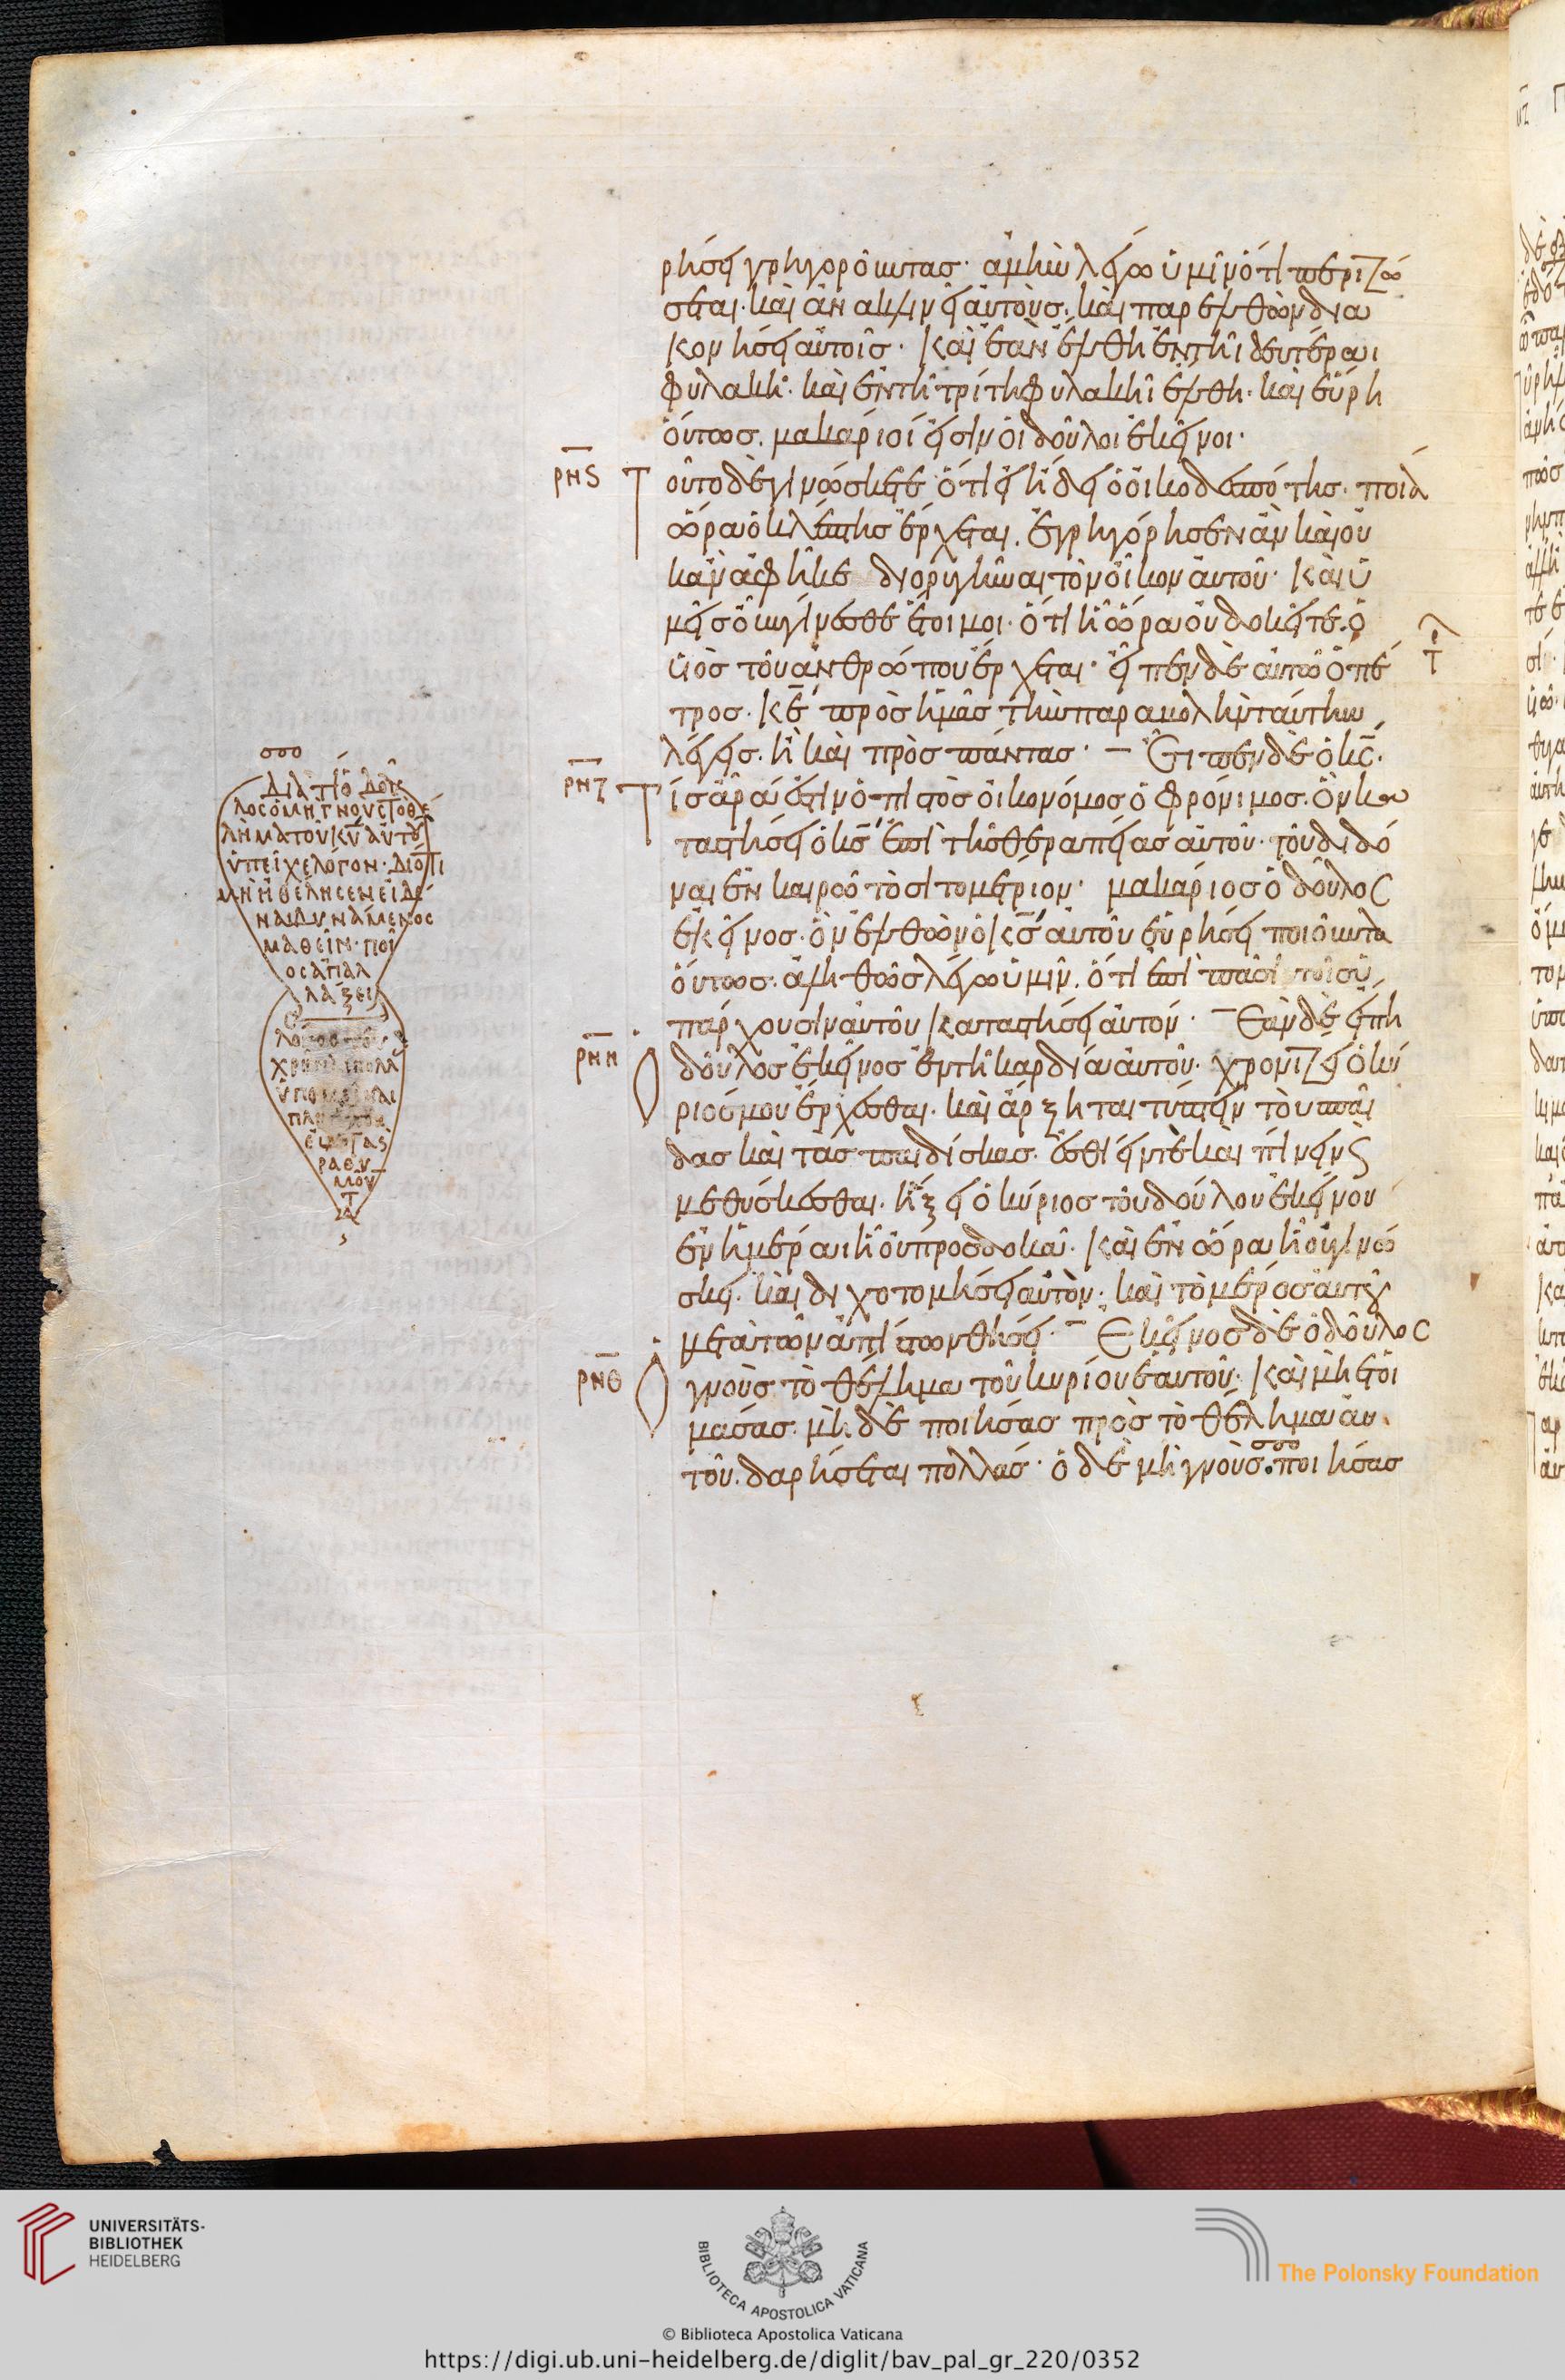 ρήσει γρηγοροῦντας· ἀμὴν λέγω ὑμῖν ὅτι περιζώ
σεται· καὶ ἀνακλινεῖ αὐτοὺς· καὶ παρελθὼν δια
κονήσει αὐτοῖς· καὶ ἐὰν ἔλθη ἐν τῆι δευτέραι
φυλακῆ· καὶ ἐν τῆ τρίτη φυλακῆι ἔλθη· καὶ εὕρη
οὕτως· μακάριοί εἰσιν οἱ δοῦλοι ἐκεῖνοι·
ρνϛ Τοῦτο δὲ γινώσκετε ὅτι εἰ ἤδει ὁ οἰκοδεσπότης· ποία
ὥρα ὁ κλέπτης ἔρχεται· ἐγρηγόρησεν ἂν καὶ οὐ
κ ἂν ἀφῆκε διορυγῆναι τὸν οἶκον αὐτοῦ· καὶ ὑ
μεῖς οὖν γίνεσθε ἕτοιμοι· ὅτι ἧ ὥρα οὐ δοκεῖτε· ὁ
υἱὸς τοῦ ἀνθρώπου ἔρχεται· εἶπεν δὲ αὐτῶ ὁ πέ
τρος· κε πρὸς ἡμᾶς τὴν παραβολὴν ταύτην
λέγεις· ἢ καὶ πρὸς πάντας· – Εἶπεν δὲ ὁ κς·
ρνζ Τίς ἄρα ἐστὶν ὁ πιστὸς οἰκονόμος ὁ φρόνιμος· ὃν κα
ταστήσει ὁ κς ἐπὶ τῆς θεραπείας αὐτοῦ· τοῦ διδό
ναι ἐν καιρῶ τὸ σιτομέτριον· μακάριος ὁ δοῦλος
ἐκεῖνος· ὃν ἐλθὼν ὁ κς αὐτοῦ εὑρήσει ποιοῦντα
οὕτως· ἀληθῶς λέγω ὑμῖν· ὅτι ἐπὶ πᾶσι τοῖς ὑ
πάρχουσιν αὐτοῦ καταστήσει αὐτόν· – Ἐὰν δὲ εἴπη
ρνη ὁ δοῦλος ἐκεῖνος ἐν τῆ καρδία αὐτοῦ· χρονίζει ὁ κύ
ριός μου ἔρχεσθαι· καὶ ἄρξηται τύπτειν τοὺς παῖ
δας καὶ τὰς παιδίσκας· ἐσθίειν τὲ καὶ πίνειν ϛ
μεθύσκεσθαι· ἥξει ὁ κύριος τοῦ δούλου ἐκείνου
ἐν ἡμέραι ἧ οὐ προσδοκᾶ· καὶ ἐν ὥρα ἧ οὐ γινώ
σκει· καὶ διχοτομήσει αὐτὸν· καὶ τὸ μέρος αὐτοῦ
μετὰ τῶν ἀπίστων θήσει· – Ἐκεῖνος δὲ ὁ δοῦλος
ρνθ ὁ γνοὺς τὸ θέλημα τοῦ κυρίου ἑαυτοῦ· καὶ μὴ ἑτοι
μάσας· μὴ δὲ ποιήσας πρὸς τὸ θέλημα αὐ
τοῦ· δαρήσεται πολλάς· ὁ δὲ μὴ γνοὺς· ποιήσας
Διὰ τί ὁ δοῦ
λος ὁ μὴ γνοὺς τὸ θέ
λημα τοῦ κυ αὐτοῦ
ὑπεῖχε λόγον· διότι
μὴ ἠθέλησεν εἰδέ
ναι δυνάμενος
μαθεῖν· ποῖ
ος ἀπαλ
λάξει
ῥαθυ
μου
UNIVERSITÄTS-
BIBLIOTHEK
HEIDELBERG
BIBLIOTECA APOSTOLICA VATICANA
The Polonsky Foundation
© Biblioteca Apostolica Vaticana
https://digi.ub.uni-heidelberg.de/diglit/bav_pal_gr_220/0352